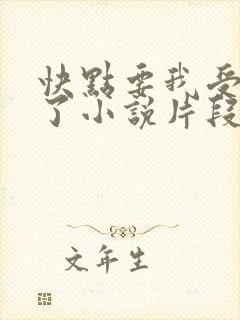 快點要我受
了小說片段
文年生